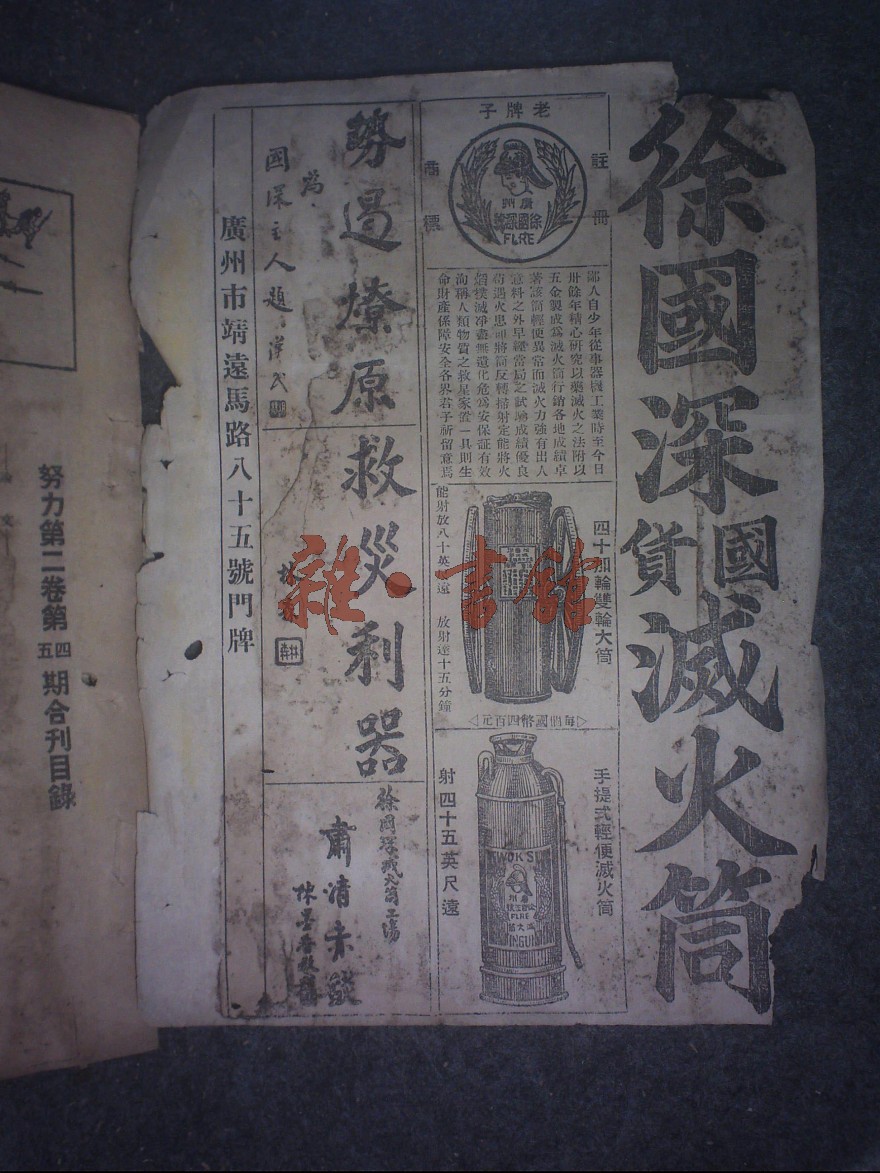 徐國深國貨滅火筒
老牌子
註冊
商標
廣州
徐國深製
FIRE
鄙人自少年從事器機工業時至今日
卅餘年精心研究以藥滅火之法附以
五金製成為滅火筒行銷各地成績卓
著該筒輕便異常而滅火力強有出人
意料之外早經當局之試驗成績優良
苟遇火患即將筒反轉掃射定能將火
焰撲滅净盡無遺化危為安保証有效
洵稱人類物質之救星家置一具則生
命財產保障安全各界君子祈留意焉
四十加輪雙輪大筒
能射放八十英尺遠 放射達十五分鐘
每個國幣四百元
手提式輕便滅火筒
射四十五英尺遠
廣州
FIRE
勢過燎原
為
國深主人題
救災利器
林
徐國琛滅火筒工場
肅清赤燄
廣州市靖遠馬路八十五號門牌
努力第二卷第四五期合刊目錄
雜·書館